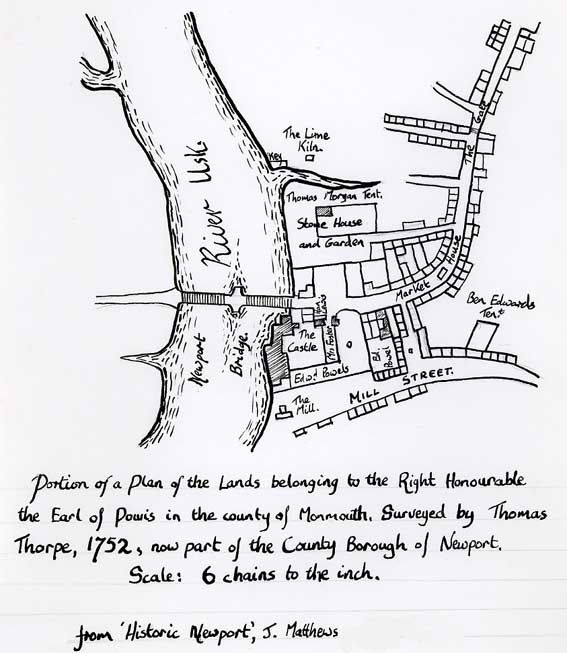 The Lime
Kiln.
Key
The Gate
Thomas Morgan Tent.
Stone House
and Garden
River Usk.
Market House
Ben Edwards
Tent
Newport
Bridge.
The
Castle
Mr Foster
Bl.
Powel
Edwd. Powels
The
Mill.
MILL STREET.
Portion of a Plan of the Lands belonging to the Right Honourable
the Earl of Powis in the county of Monmouth. Surveyed by Thomas
Thorpe, 1752, now part of the County Borough of Newport.
Scale: 6 chains to the inch.
from 'Historic Newport', J. Matthews